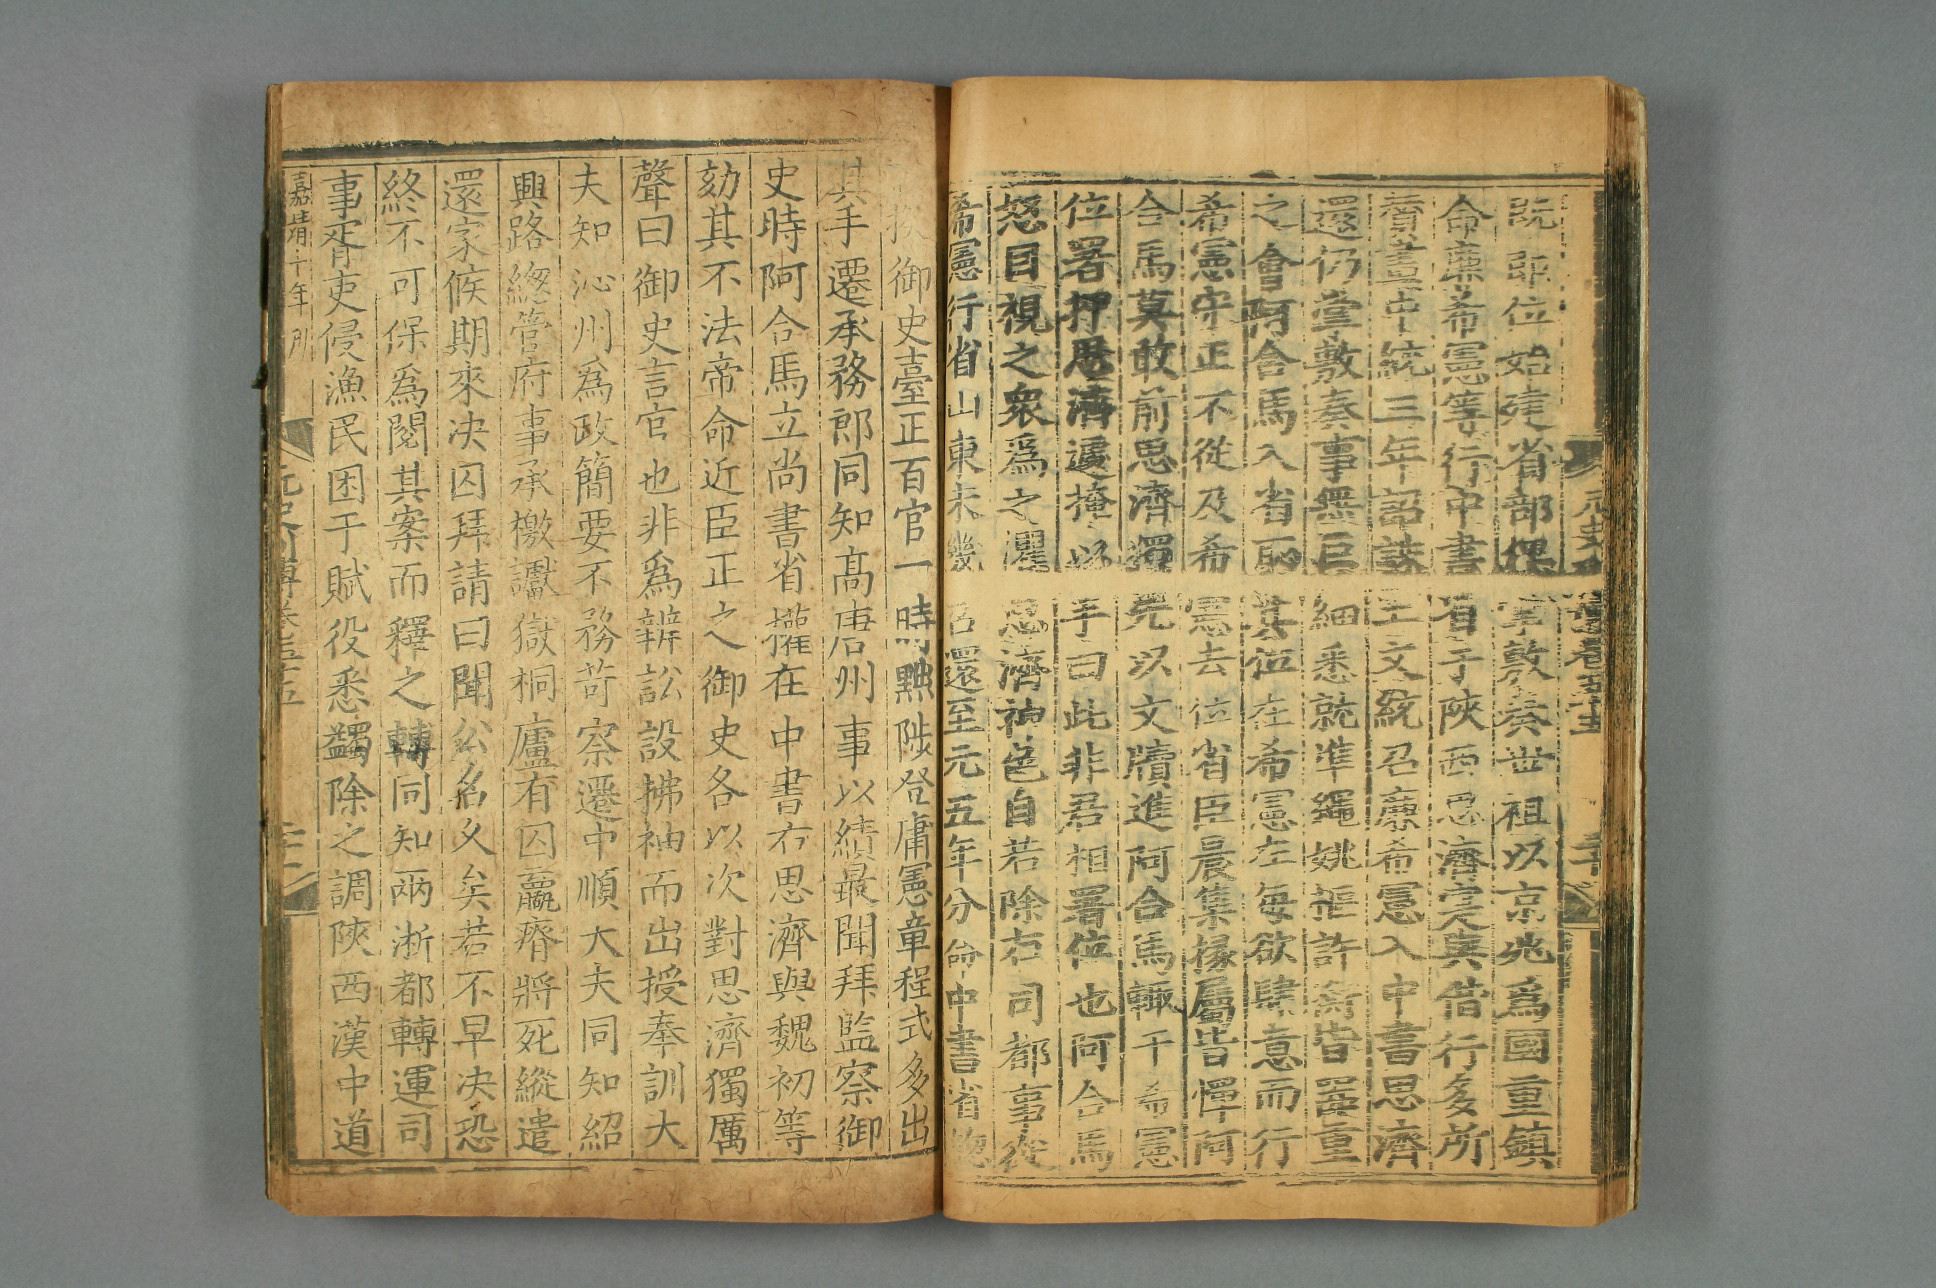 既即位始建省部俾掌敷奏世祖以京兆爲國重鎮
命廉希憲等行中書省于陝西思濟定與偕行多所
賛畫中統三年詔誅王文統召廉希憲入中書思濟
還仍掌敷奏事無巨細悉就準繩姚樞許衡皆器重
之會阿合馬入省耻其位在希憲左每欲肆意而行
希憲守正不從及希憲去位省臣晨集掾屬皆憚阿
合馬莫敢前思濟獨先以文牘進阿合馬輒于希憲
位署押思濟遽掩以手曰此非君相署位也阿合馬
怒目視之衆爲之懼思濟神色自若除右司都事從
希憲行省山東未幾召還至元五年分命中書省總
御史臺正百官一時黜陟登庸憲章程式多出
其手遷承務郎同知高唐州事以績最聞拜監察御
史時阿合馬立尚書省權在中書右思濟與魏初等
劾其不法帝命近臣正之御史各以次對思濟獨厲
聲曰御史言官也非爲辨訟設拂袖而出授奉訓大
夫知沁州爲政簡要不務苛察遷中順大夫同知紹
興路緫管府事承檄讞獄桐廬有囚羸瘠將死縱遣
還家候期來决囚拜請曰聞公名久矣若不早决恐
終不可保爲閱其案而釋之轉同知兩淅都轉運司
事胥吏侵漁民困于賦役悉蠲除之調陝西漢中道
嘉靖十年刋